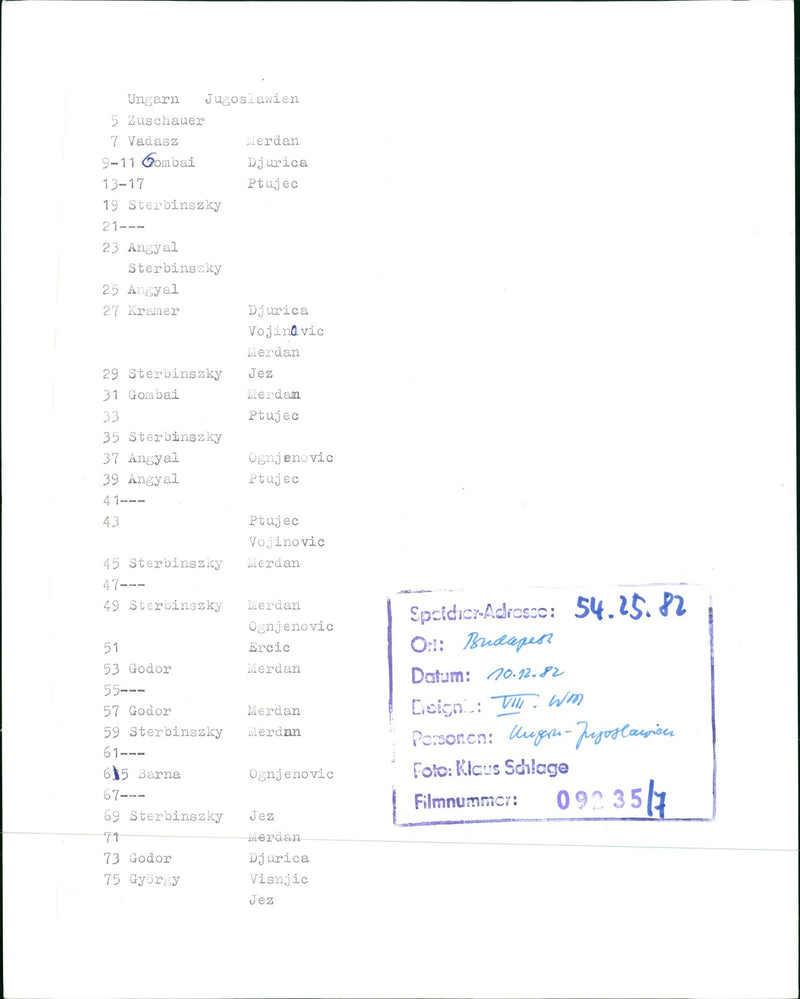 Ungarn Jugoslawien
5 Zuschauer
7 Vadasz Merdan
9-11 Gombai Djurica
13-17 Ptujec
19 Sterbinszky
21---
23 Angyal
Sterbinszky
25 Angyal
27 Kramer Djurica
Vojinovic
Merdan
29 Sterbinszky Jez
31 Gombai Merdan
33 Ptujec
35 Sterbinszky
37 Angyal Ognjenovic
39 Angyal Ptujec
41---
43 Ptujec
Vojinovic
45 Sterbinszky Merdan
47---
49 Sterbinszky Merdan
Ognjenovic
51 Ercic
53 Godor Merdan
55---
57 Godor Merdan
59 Sterbinszky Merdan
61---
65 Barna Ognjenovic
67---
69 Sterbinszky Jez
71 Merdan
73 Godor Djurica
75 György Visnjic
Jez
Speicher-Adresse: 54.25.82
Ort: Budapest
Datum: 10.12.82
Ereignis: VIII. WM
Personen: Ungarn-Jugoslawien
Foto: Klaus Schlage
Filmnummer: 09235/7